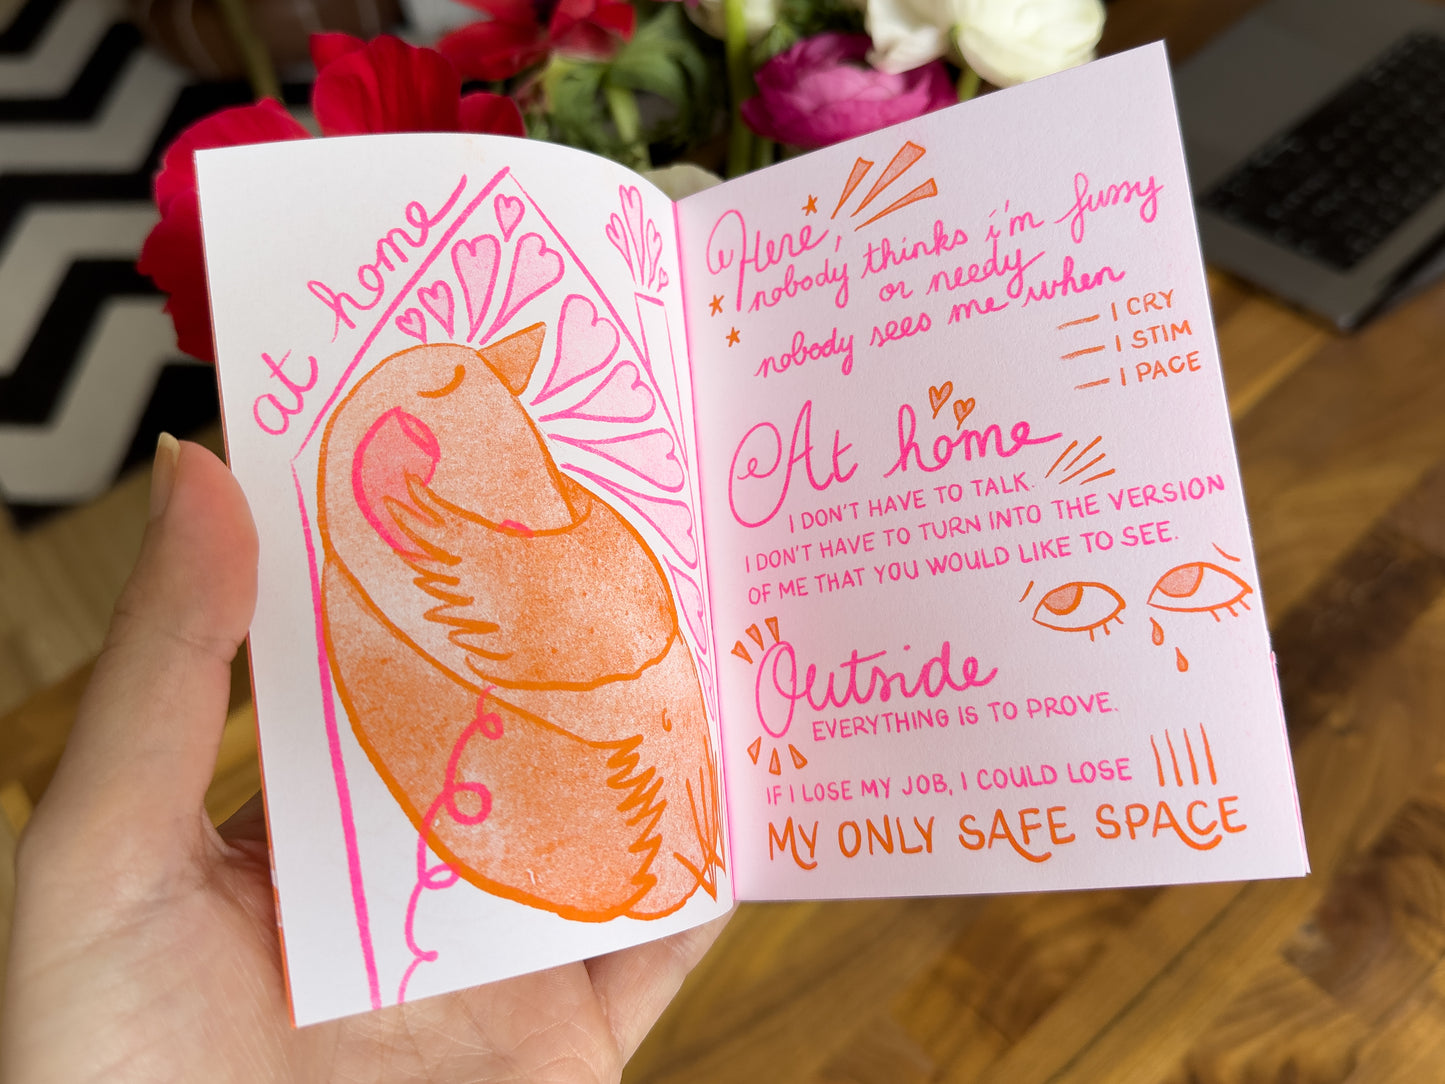 at home
Here,
nobody thinks i'm fussy
or needy
nobody sees me when
— I CRY
— I STIM
— I PACE
At home
I DON'T HAVE TO TALK.
I DON'T HAVE TO TURN INTO THE VERSION
OF ME THAT YOU WOULD LIKE TO SEE.
Outside
EVERYTHING IS TO PROVE.
IF I LOSE MY JOB, I COULD LOSE
MY ONLY SAFE SPACE